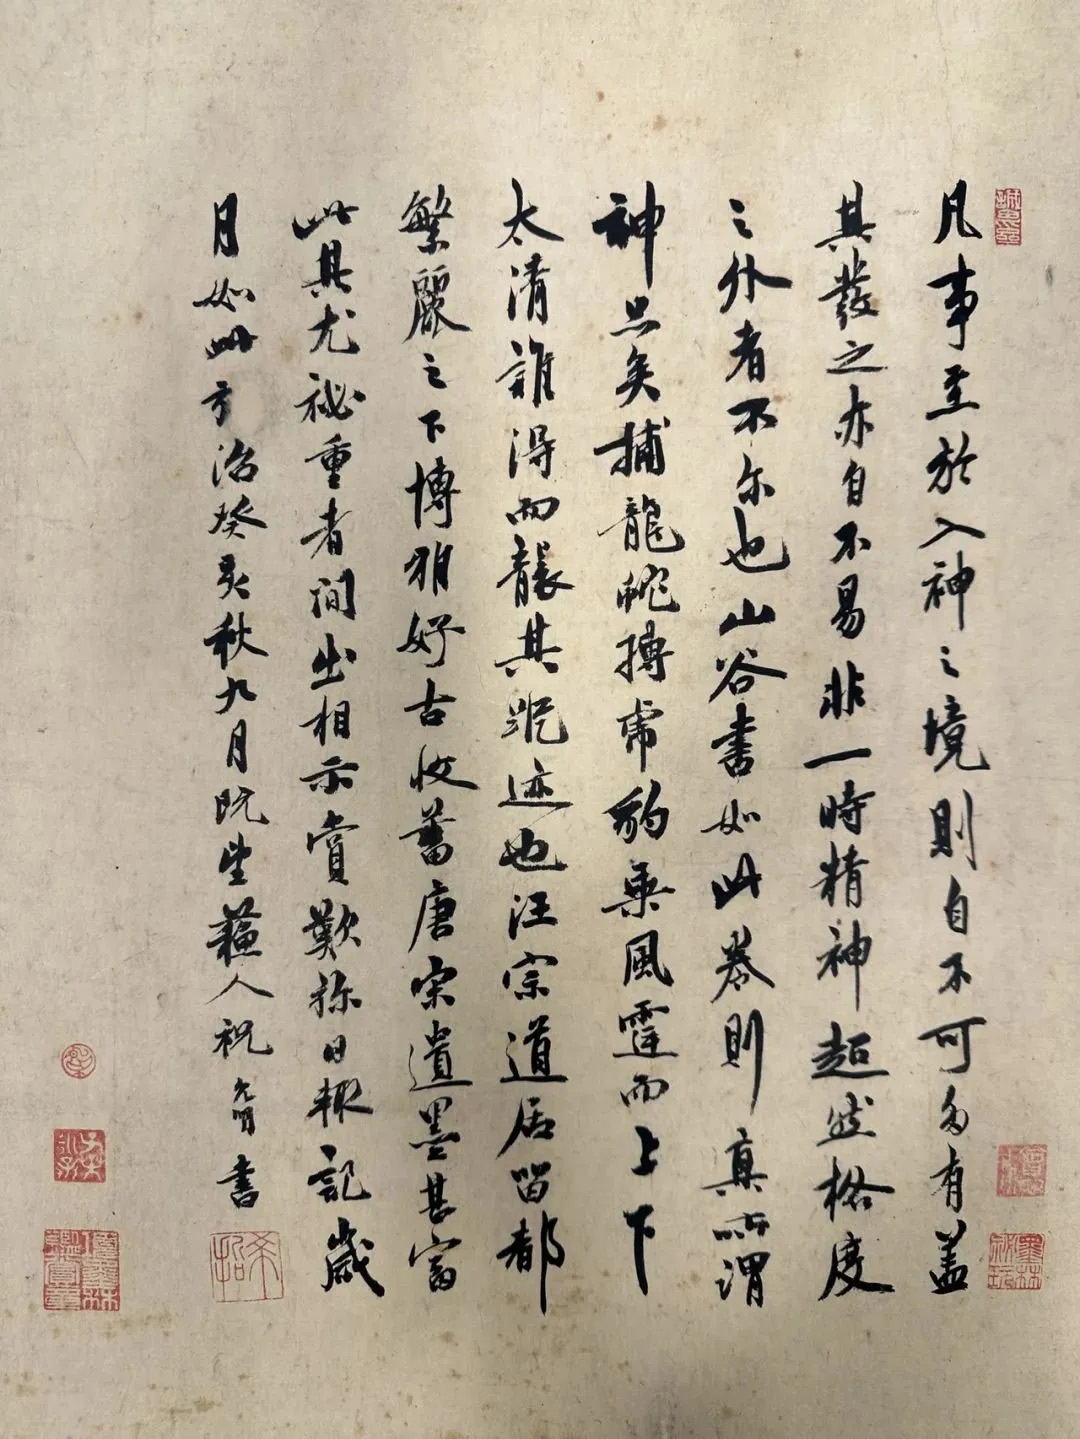 凡事至於入神之境則自不可多有蓋
其發之亦自不易非一時精神超然格度
之外者不尔也山谷書如此卷則真所謂
神品矣捕龍蛇搏虎豹乘風霆而上下
太清誰得而襲其蹤迹也汪宗道居留都
繁麗之下博雅好古收蓄唐宋遺墨甚富
此其尤祕重者間出相示賞歎稱日輒記歲
月如此弘治癸亥秋九月既望蘓人祝允明書